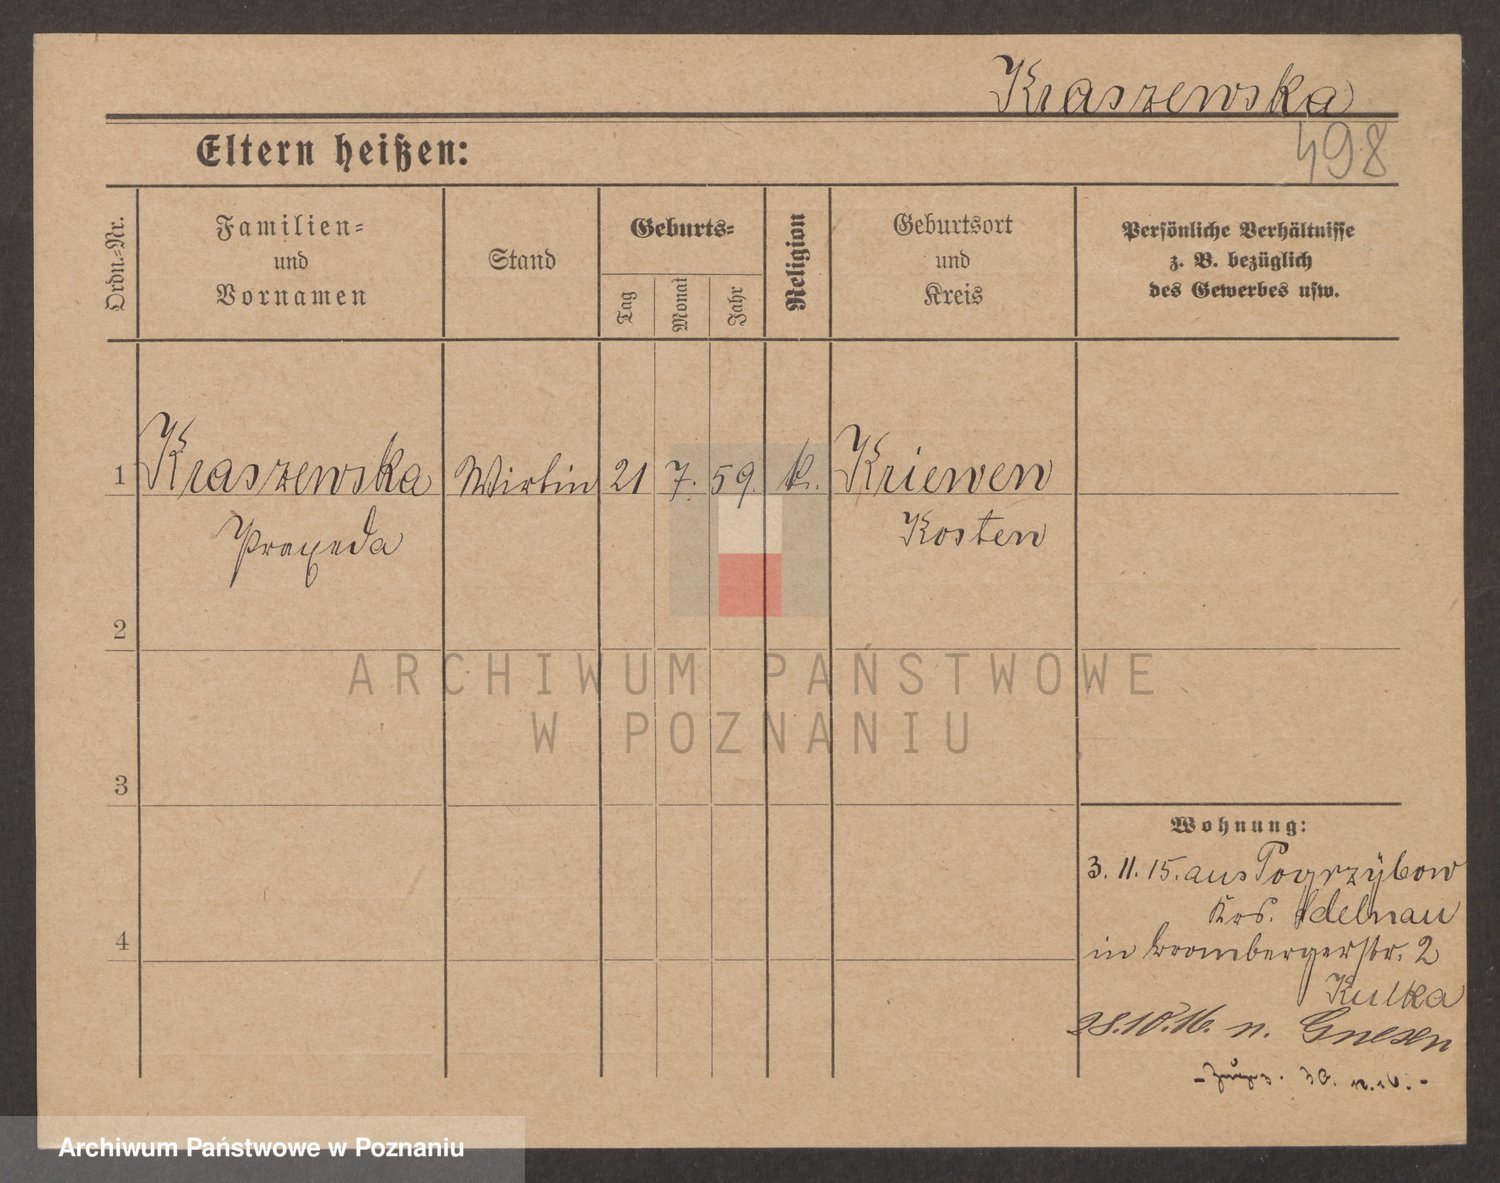 Kraszewska
498
Eltern heißen:
Ordn.-Nr.
Familien-
und
Vornamen
Stand
Geburts-
Tag
Monat
Jahr
Religion
Geburtsort
und
Kreis
Persönliche Verhältnisse
z. B. bezüglich
des Gewerbes usw.
1 Kraszewska Wirtin 21 7. 59. k. Kriewen
Praxeda Kosten
2
ARCHIWUM PAŃSTWOWE
W POZNANIU
3
Wohnung:
3. 11. 15. aus Pogrzybow
Krs. Adelnau
4
in Brombergerstr. 2
Kulka
28.10.16. n. Gnesen
Archiwum Państwowe w Poznaniu